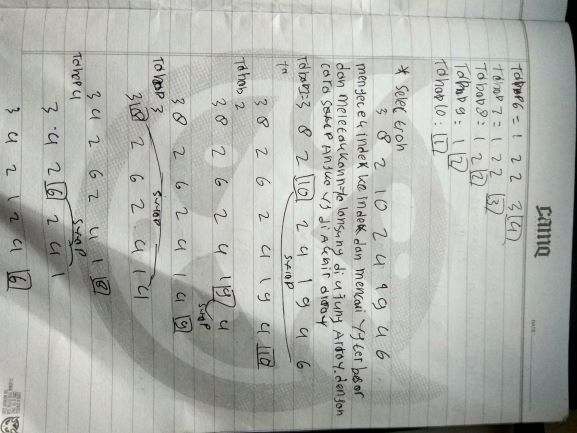 camq
DATE
Tahap 6 = 1 2 2 3 4
Tahap 7 = 1 2 2 3
Tahap 8 : 1 2 2
Tahap 9 : 1 2
Tahap 10 : 1
* Selection
3 8 2 10 2 4 1 9 4 6
mengecek index ke index dan mencari yg ter besar
dan meletakkannya lansung di ujung Array dengan
cara swap Angka yg di Akhir array
Tahap 1 = 3 8 2 10 2 4 1 9 4 6
swap
3 8 2 6 2 4 1 9 4 10
Tahap 2
3 8 2 6 2 4 1 9 4
swap
3 8 2 6 2 4 1 4 9
Tahap 3
swap
3 8 2 6 2 4 1 4
3 4 2 6 2 4 1 8
Tahap 4
swap
3 4 2 6 2 4 1
3 4 2 1 2 4 6